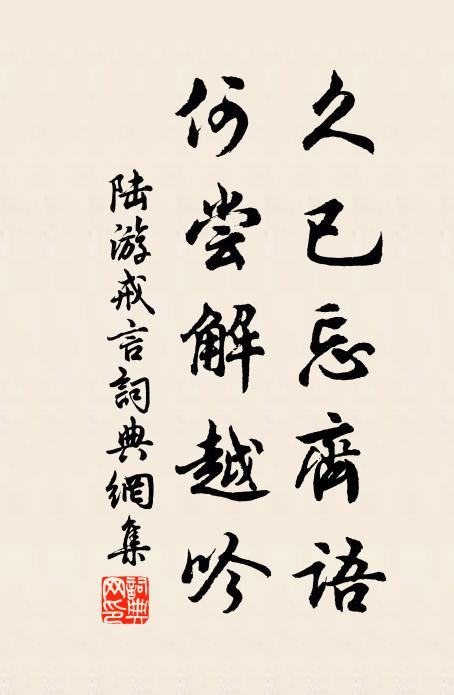 久已忘齊語
何嘗解越吟
陸游戒言詞典網集
詞典網印